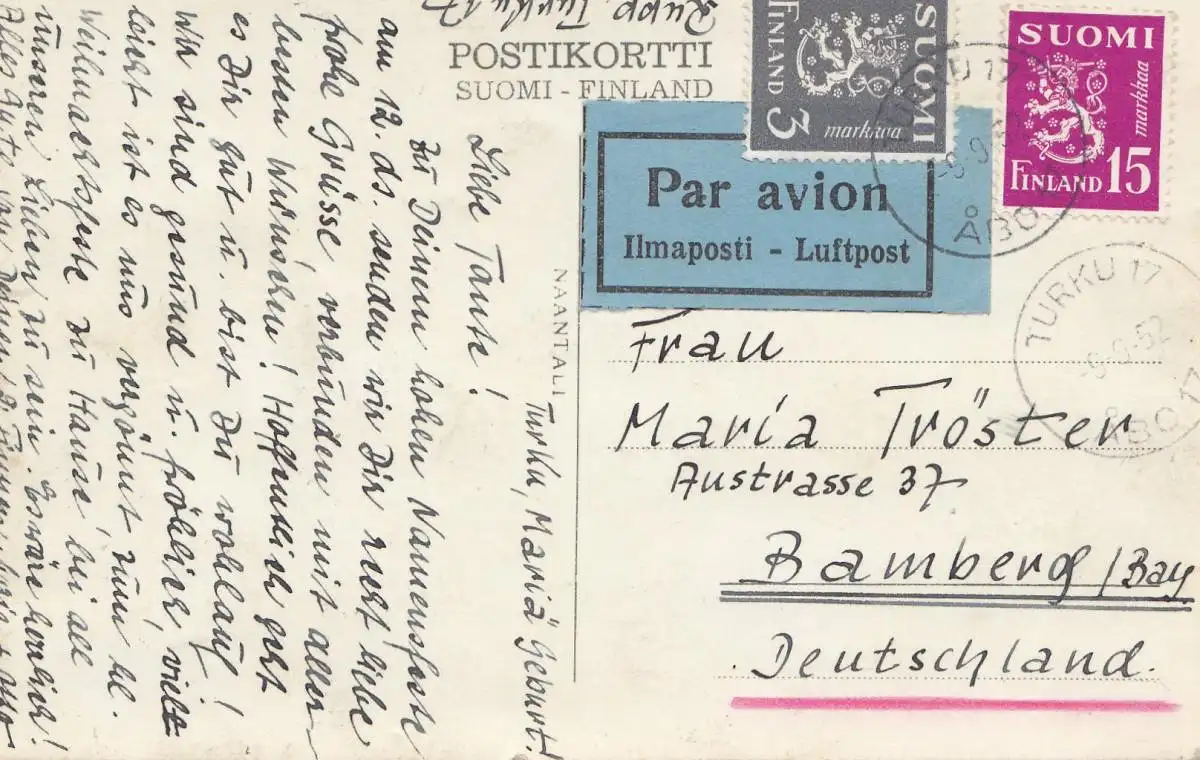 Rupp, Turku 17
POSTIKORTTI
SUOMI - FINLAND
NAANTALI
Turku, Mariä Geburt!
Liebe Tante!
Zu Deinem hohen Namensfeste
am 12. ds. senden wir Dir recht liebe
frohe Grüsse, verbunden mit aller-
besten Wünschen! Hoffentlich geht
es Dir gut u. bist Du wohlauf!
Wir sind gesund u. fröhlich, viel-
leicht ist es uns vergönnt zum hl.
Weihnachtsfeste zu Hause bei all
unseren Lieben zu sein. Es wäre herrlich!
Alles Gute von Deinen
SUOMI
FINLAND
3 markkaa
SUOMI
markkaa
FINLAND 15
Par avion
Ilmaposti - Luftpost
TURKU 17
ÅBO
TURKU 17
-9.9.52
ÅBO 17
Frau
Maria Tröster
Austrasse 37
Bamberg / Bay
Deutschland.